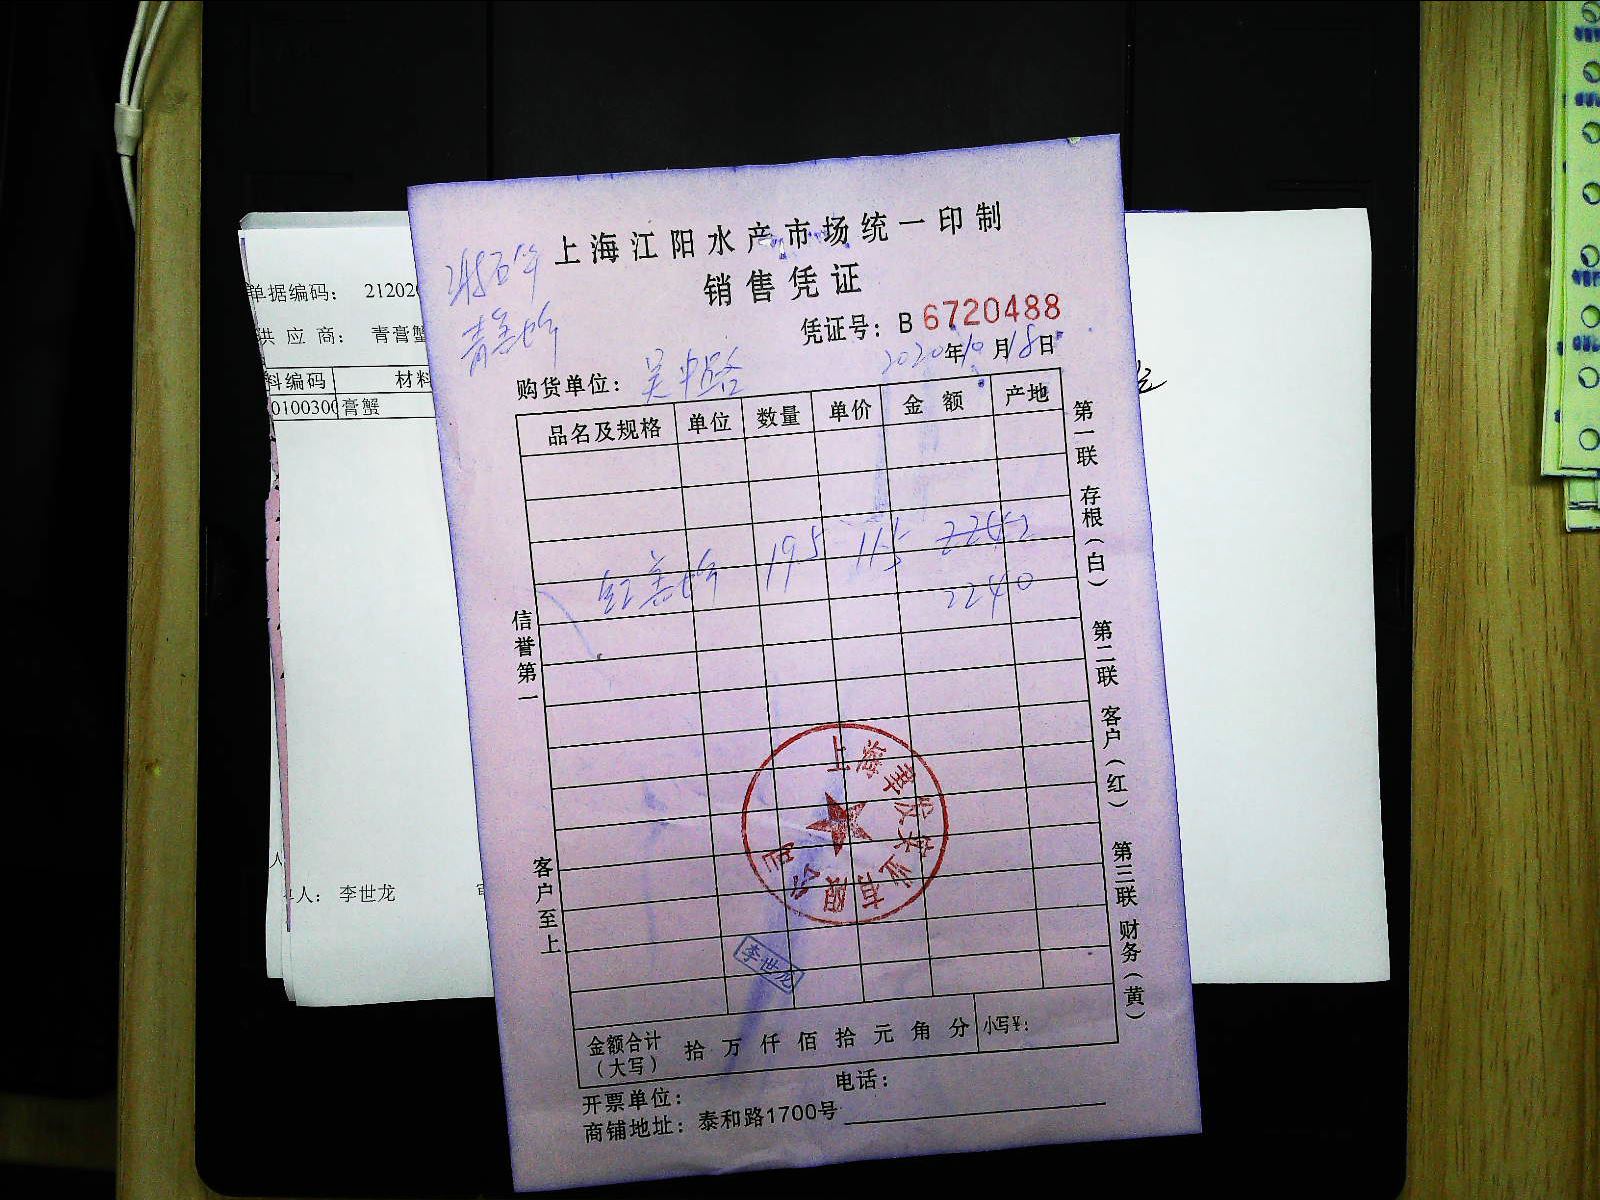 上海江阳水产市场统一印制
销售凭证
凭证号：B 6720488
2020年10月18日
购货单位：吴中路
品名及规格 单位 数量 单价 金额 产地
红膏蟹 195 115 2242
2240
信誉第一
客户至上
第一联 存根（白） 第二联 客户（红） 第三联 财务（黄）
李世龙
金额合计（大写） 拾 万 仟 佰 拾 元 角 分 小写¥：
开票单位： 电话：
商铺地址：泰和路1700号
单据编码： 21202
供 应 商： 青膏蟹
料编码 材料
0100300 膏蟹
人： 李世龙